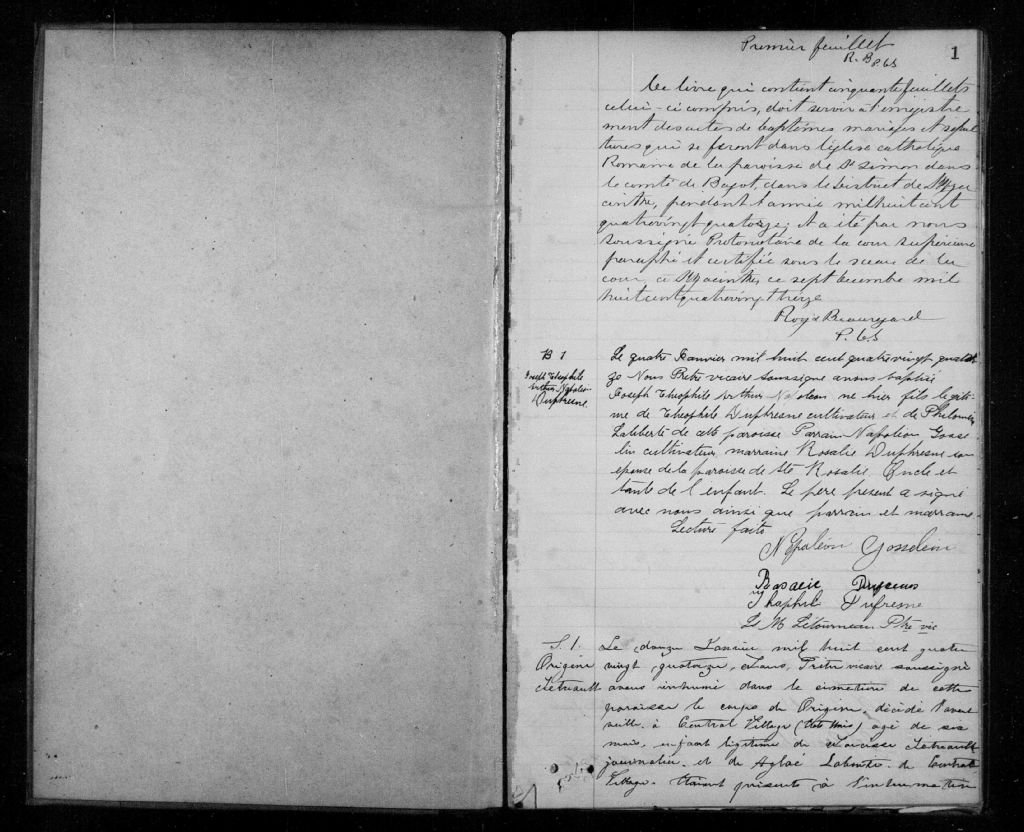 Premier feuillet
R. B P.C.S
1
Ce livre qui contient cinquante feuillets
celui-ci compris, doit servir à l'enregistre
ment des actes de baptêmes mariages et sépul
tures qui se feront dans l'église catholique
Romaine de la paroisse de St Simon dans
le comté de Bagot, dans le District de St Hya
cinthe, pendant l'année mil huit cent
quatrevingt quatorze; et a été par nous
soussigné Protonotaire de la cour supérieure
paraphé et certifié sous le sceau de la
cour, à St Hyacinthe, ce sept Decembre mil
huit cent quatreving treize
Roy & Beauregard
P. C. S
B 1
Joseph Theophile
Arthur Napoleon
Duphresne
Le quatre Janvier mil huit cent quatre vingt quator
ze Nous Pretre vicaire soussigne avons baptisé
Joseph Theophile Arthur Napoleon ne hier fils legiti
me de Theophile Duphresne cultivateur et de Philomène
Laliberté de cette paroisse Parrain Napoleon Gosse
lin cultivateur marraine Rosalie Duphresne son
epouse de la paroisse de Ste Rosalie Oncle et
tante de l'enfant. Le pere present a signé
avec nous ainsi que parrain et marraine
Lecture faite
Napoléon Gosselin
Rosalie
Thaophile Dufresne
Ls M Létourneau Ptre vic
S. 1.
Origène
Tétreault
Le douze Janvier mil huit cent quatre
vingt quatorze, Nous, Pretre vicaire soussigné
avons inhumé dans le cimetière de cette
paroisse le corps de Origène, décédé l'avant
veille à Central Village (Etats Unis) agé de six
mois, enfant légitime de Narcisse Tétreault
journalier et de Aglaé Labonté de Central
Village. Etaient présents à l'inhumation